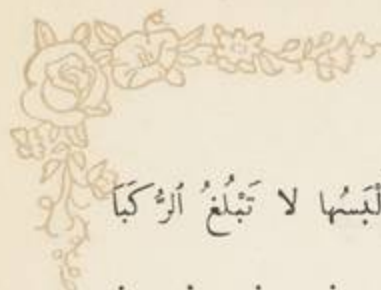 لْبَسُها لا تَبْلُغُ ٱلرُّكَبَا